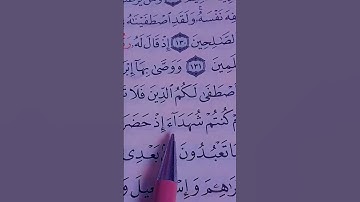 فِهَ نَفْسَهُۥ ۚ وَلَقَدِ ٱصْطَفَيْنَٰهُ
لصَّٰلِحِينَ ١٣٠ إِذْ قَالَ لَهُۥ رَ
لَمِينَ ١٣١ وَوَصَّىٰ بِهَآ إِبْرَ
ٱصْطَفَىٰ لَكُمُ ٱلدِّينَ فَلَا تَ
مْ كُنتُمْ شُهَدَآءَ إِذْ حَضَرَ
مَا تَعْبُدُونَ بَعْدِى
رَٰهِـۧمَ وَإِسْ عِيلَ وَ